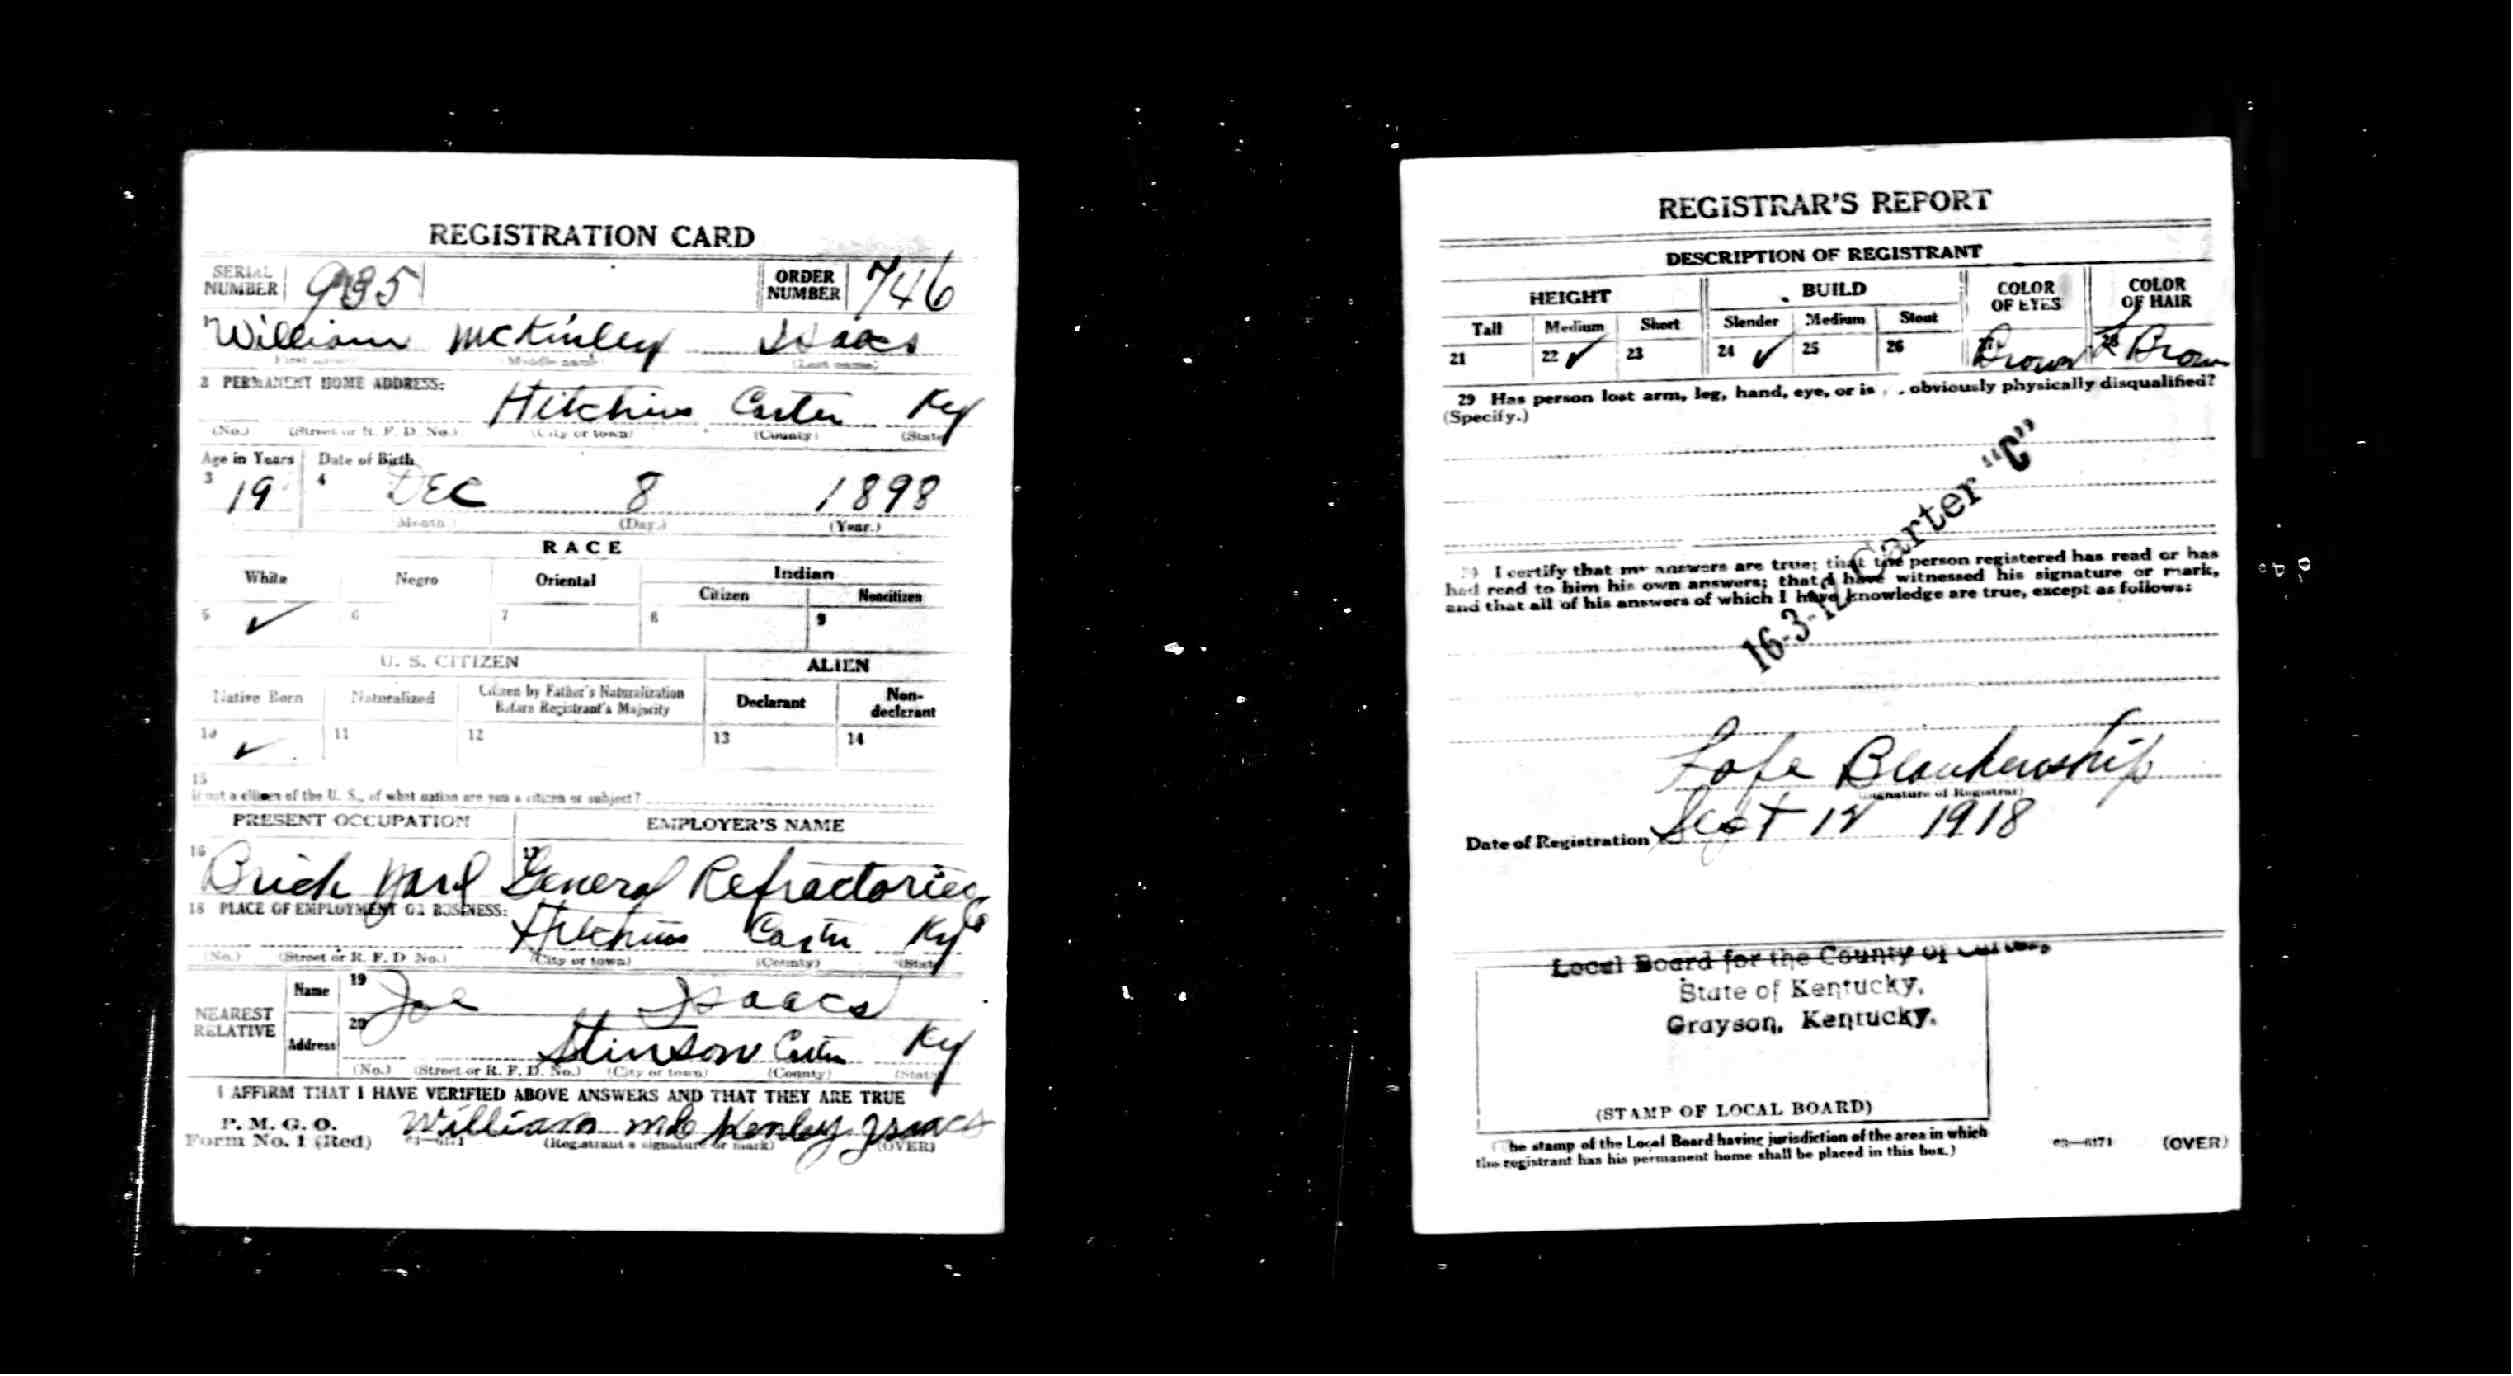 REGISTRATION CARD
SERIAL NUMBER 935 ORDER NUMBER 746
1 William McKinley Isaacs
(First name) (Middle name) (Last name)
2 PERMANENT HOME ADDRESS:
Hitchins Carter Ky
(No.) (Street or R. F. D. No.) (City or town) (County) (State)
Age in Years Date of Birth
3 19 4 DEC 8 1898
(Month.) (Day.) (Year.)
RACE
White Negro Oriental Indian
Citizen Noncitizen
5 ✓ 6 7 8 9
U. S. CITIZEN ALIEN
Native Born Naturalized Citizen by Father's Naturalization Before Registrant's Majority Declarant Non-declarant
10 ✓ 11 12 13 14
15
If not a citizen of the U. S., of what nation are you a citizen or subject?
PRESENT OCCUPATION EMPLOYER'S NAME
16 Brick Yard 17 General Refractories Co
18 PLACE OF EMPLOYMENT OR BUSINESS:
Hitchins Carter Ky
(No.) (Street or R. F. D. No.) (City or town) (County) (State)
NEAREST RELATIVE Name 19 Joe Isaacs
Address 20 Stinson Carter Ky
(No.) (Street or R. F. D. No.) (City or town) (County) (State)
I AFFIRM THAT I HAVE VERIFIED ABOVE ANSWERS AND THAT THEY ARE TRUE
P. M. G. O.
Form No. 1 (Red) 03—6171 William Mc Kenley Isaacs
(Registrant's signature or mark) (OVER)
REGISTRAR'S REPORT
DESCRIPTION OF REGISTRANT
HEIGHT BUILD COLOR OF EYES COLOR OF HAIR
Tall Medium Short Slender Medium Stout
21 22 ✓ 23 24 ✓ 25 26 27 Brown 28 Brown
29 Has person lost arm, leg, hand, eye, or is obviously physically disqualified?
(Specify.)
16-3-12 Carter "C"
30 I certify that my answers are true; that the person registered has read or has
had read to him his own answers; that I have witnessed his signature or mark,
and that all of his answers of which I have knowledge are true, except as follows:
Lafe Blankenship
(Signature of Registrar)
Date of Registration Sept 12 1918
Local Board for the County of Carter,
State of Kentucky,
Grayson, Kentucky.
(STAMP OF LOCAL BOARD)
(The stamp of the Local Board having jurisdiction of the area in which
the registrant has his permanent home shall be placed in this box.)
03—6171 (OVER)